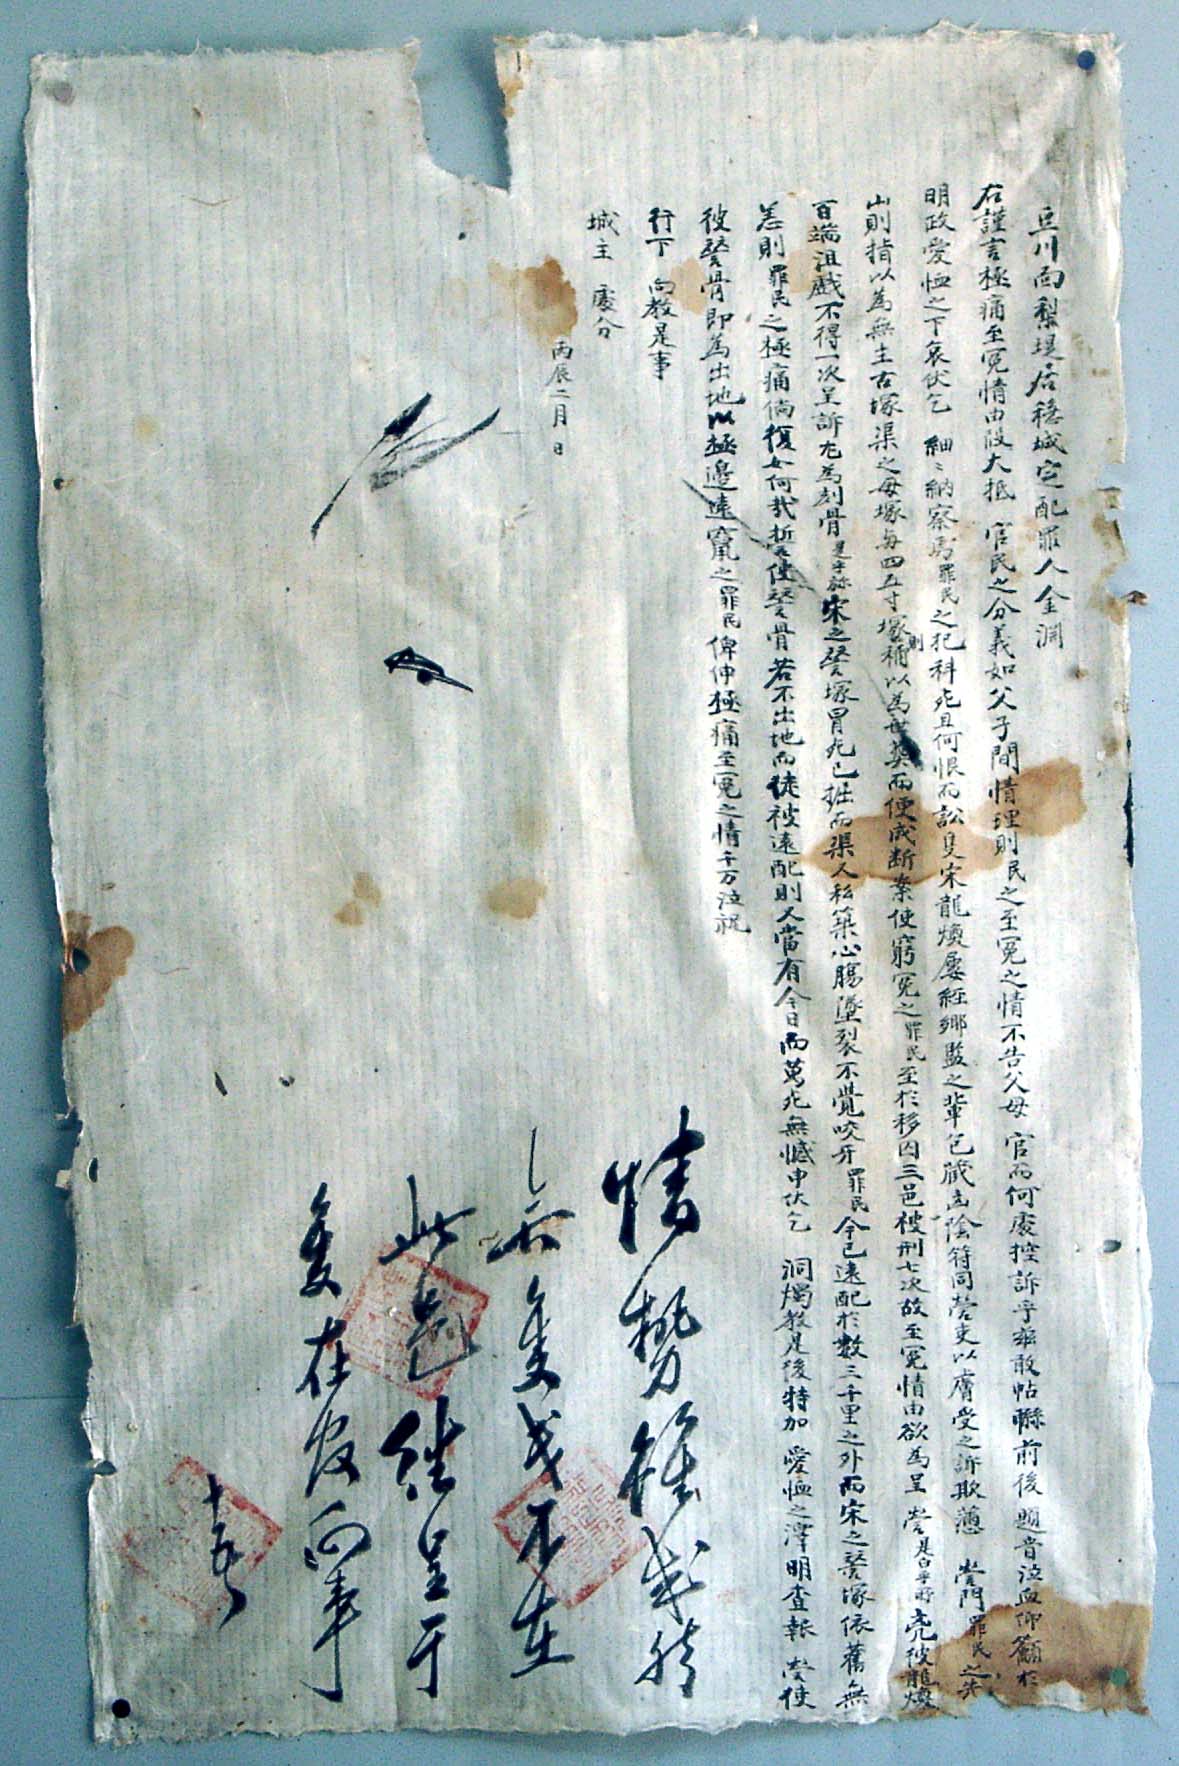 豆川面梨堤居穩城定配罪人金淵
右謹言極痛至冤情由段大抵 官民之分義如父子間情理則民之至冤之情不告父母 官而何處控訴乎玆敢帖聯前後題音泣血仰籲於
明政愛恤之下哀伏乞 細細納察焉罪民之犯科死且何恨而訟隻宋龍煥屢經鄉監之輩包藏凶陰符同營吏以膚受之訴欺蔥 營門罪民之先
山則指以為無主古塚渠之母塚每四五寸塚則稱以為世葬而便成斷案使窮冤之罪民至於移囚三邑被刑七次故至冤情由欲為呈 營是白乎所竟被龍煥
百端沮戲不得一次呈訴尤為刻骨是乎旀宋之瑩塚冒死已掘而渠又私築心膓墮裂不覺咬牙罪民今已遠配於數三千里之外而宋之瑩塚依舊無
恙則罪民之極痛倘復如何哉誓使瑩骨若不出地而徒被遠配則又當有今日而萬死無憾申伏乞 洞燭教是後特加 愛恤之澤明查報 營使
彼瑩骨即為出地以極邊遠竄之罪民俾伸極痛至冤之情千万泣祝
行下 向教是事
城主 處分
丙辰二月 日
情勢雖戚然
隻哉不在
此邑往呈于
隻在官向事
十五日